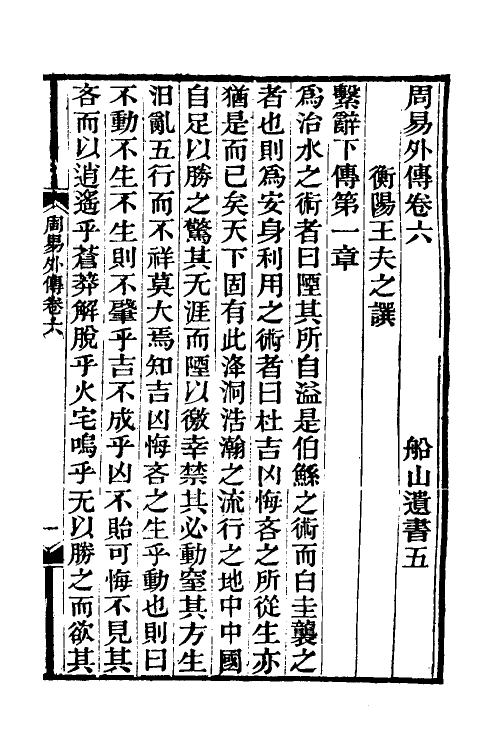 周易外傳卷六　　船山遺書五
衡陽王夫之譔
繫辭下傳第一章
爲治水之術者曰陻其所自溢是伯鯀之術而白圭襲之
者也則爲安身利用之術者曰杜吉凶悔吝之所從生亦
猶是而已矣天下固有此洚洞浩瀚之流行之地中中國
自足以勝之驚其无涯而陻以徼幸禁其必動窒其方生
汩亂五行而不祥莫大焉知吉凶悔吝之生乎動也則曰
不動不生不生則不肇乎吉不成乎凶不貽可悔不見其
吝而以逍遙乎蒼莽解脫乎火宅嗚乎无以勝之而欲其
周易外傳卷六
一